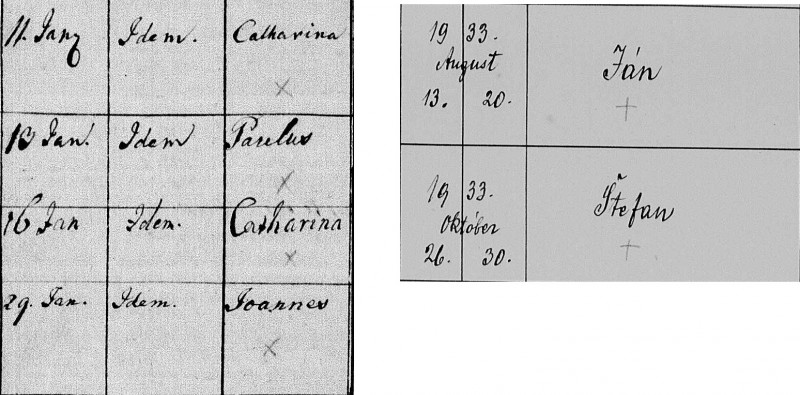 11. Jan Idem. Catharina
13 Jan. Idem Paulus
16 Jan Idem. Catharina
29. Jan. Idem. Joannes
19 33.
August
13. 20.
Ján
19 33.
Október
26. 30.
Štefan